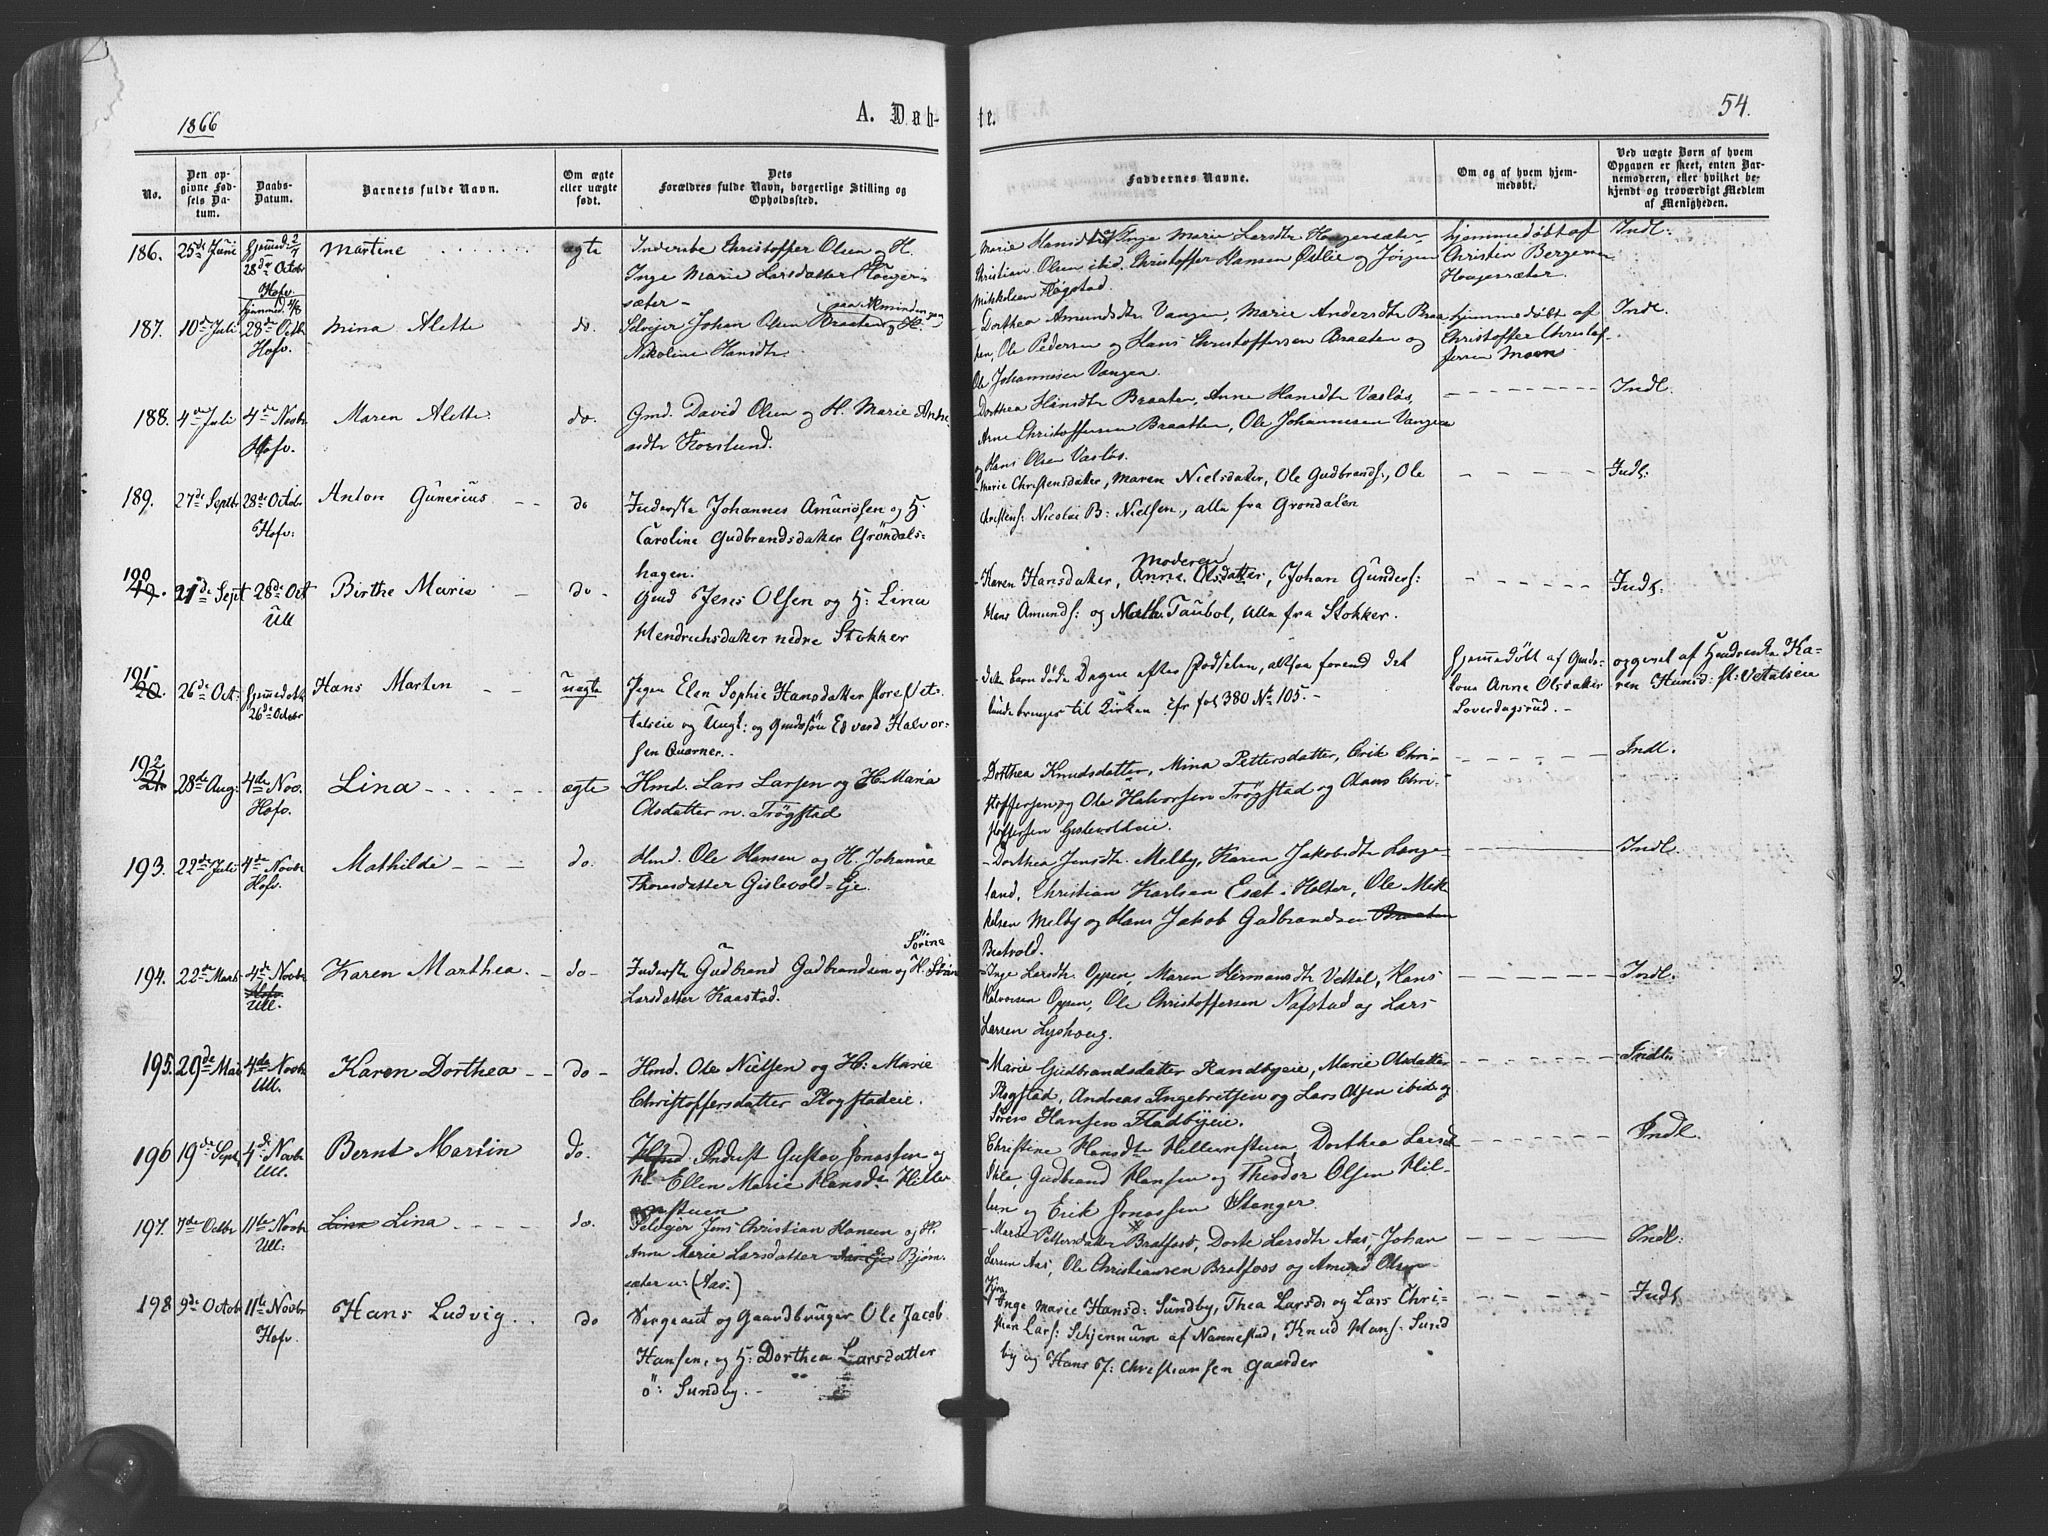 1866
A. Døb-
te.
54.
No.
Den op-
givne Fød-
sels Da-
tum.
Daabs-
Datum.
Barnets fulde Navn.
Om ægte
eller uægte
født.
Dets
Forældres fulde Navn, borgerlige Stilling og
Opholdssted.
Faddernes Navne.
Om og af hvem hjem-
medøbt.
Ved uægte Børn af hvem
Opgaven er skeet, enten Bar-
nemoderen, eller hvilket be-
kjendt og troværdigt Medlem
af Menigheden.
186. 25de Juni
28de Octobr
Hofv.
Martine
ægte
Inderste Christoffer Olsen og H.
Inge Marie Larsdatter Haager-
sæter
Marie Hansdtr Inge Marie Larsdtr Haagersæter
Christian Olsen ibid. Christoffer Hansen Østlie og Jörgen
Flogstad.
hjemmedøbt af
Christian Bergersen
Haagersæter.
Indl.
187. 10de Juli
hjemmed.
28de Octb
Hofv.
Mina Alette
do.
Selveier Johan Olsen Braaten og H.
Nikoline Hansdtr.
Dorthea Amundsdtr Vangen, Marie Andersdtr Braa
ten, Ole Pedersen og Hans Christoffersen Braaten og
Ole Johannesen Vangen.
hjemmedøbt af
Christoffer Christof
fersen Moen
Indl.
188. 4de Juli
4de Novbr
Hofv.
Maren Alette
do.
Gmd. David Olsen og H. Marie Andr
sdtr Korslund.
Dorthea Hansdtr Braaten, Anne Hansdtr Vasløs,
Arne Christoffersen Braatten, Ole Johannesen Vangen
og Hans Olsen Vasløs.
Indl.
189. 27de Septbr
28de Octobr
Hofv:
Anton Gunerius
do
Inderste Johannes Amundsen og H.
Caroline Gudbrandsdatter Gröndals-
hagen.
Marie Christensdatter, Maren Nielsdatter, Ole Gudbrands., Ole
Christens: Nicolai B: Nielsen., alle fra Grøndalen
Indl.
190
21de Sept
28de Oct
Ull
Birthe Marie
do
Gmd Jens Olsen og H: Lina
Hendrichsdatter nedre Stokker
Moderen
Karen Hansdatter, Anne Olsdatter, Johan Gunders:
Hans Amunds: og Math Taubol, alle fra Stokker.
Indl.
191
20.
26de Oct:
Hjemmedøbt
26de Octobr
Hans Martin
uægte
Pigen Elen Sophie Hansdatter store Vet-
talseie og Ungk: og Gmdssön Edvard Halvor-
sen Quarner.
dette Barn døde Dagen efter Fødselen, altsaa forend det
kunde bringes til Kirken cfr fol 380 No 105.
Hjemmedøbt af Gmds-
kone Anne Olsdatter
Loverdagsrud.
opgivet af Ka-
ren Hansd: st: Vetalseie
192
21.
28de Aug:
4de Nov.
Hofv.
Lina
ægte
Hmd. Lars Larsen og H. Maria
Olsdatter n. Trögstad
Dorthea Knudsdatter, Mina Pettersdatter, Erik Chri-
stoffersen og Ole Halvorsen Trögstad og Hans Chri-
stoffersen Gislevoldeie.
Indl.
193. 22de Juli
4de Novbr
Hofv.
Mathilde
do.
Hmd. Ole Hansen og H. Johanne
Thoresdatter Gislevold-Eje.
Dorthea Jensdtr. Melby, Karen Jakobsdtr Lange-
land, Christian Karlsen Eset i Holter, Ole Mik
kelsen Melby og Hans Jakob Gudbrandsen Braaten
Bestvold.
Indl.
194. 22de Marts
4de Novbr
Hofv.
Ull.
Karen Marthea.
do
Sörine
Inderste Gudbrand Gudbrandsen og H.
Larsdatter Kaastad.
Inge Larsdtr. Oppen, Maren Hermansdtr Vettal, Hans
Halvorsen Oppen, Ole Christoffersen Nafstad og Lars
Larsen Lyshoug.
Indl.
195. 29de Mai
4de Novbr
Ull.
Karen Dorthea
do
Hmd. Ole Nielsen og H: Marie
Christoffersdatter Plogstadeie.
Marie Gudbrandsdatter Randbyeie, Marie Olsdatter
Plogstad, Andreas Ingebretsen og Lars Olsen ibid og
Sörens Hansen Fladbyeie.
Indl.
196 19de Sept.
4de Novbr
Ull.
Bernt Martin
do.
Hmd. Inderst Gustav Jonassen og
H. Ellen Marie Hansd: Hiller
enstuen
Christine Hansdtr Hillerenstuen, Dorthea Larsd
Ihle, Gudbrand Hansen og Theodor Olsen Hil-
len og Erik Jonassen Stenger.
Indl.
197. 7de Octbr
11te Novbr
Ull:
Lina Lina
do.
Selveger Jens Christian Hansen og H.
Anne Marie Larsdatter Aas Eje Björn
sæter u: (Aas.)
Marie Pettersdatter Bratfoss, Dorte Larsdtr Aas, Johan
Larsen Aas, Ole Christiansen Bratfoss og Amund Olsen
Indl.
198 9de Octobr
11te Novbr
Hofv.
Hans Ludvig.
do
Sergeant og Gaardbruger Ole Jacob
Hansen, og H: Dorthea Larsdatter
ö: Sundby.
Inge Marie Hansd: Sundby, Thea Larsd: og Lars Chri-
stian Lars: Schjennum af Nannestad, Knud Hans: Sund
by og Hans J: Christiansen Gaarder
Indl